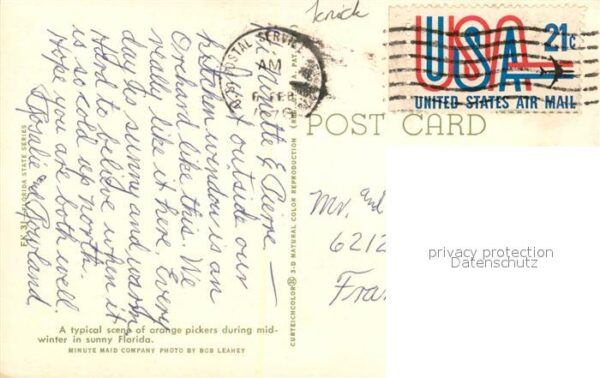 Knick
POSTAL SERVICE
AM
FEB
USA 21c
UNITED STATES AIR MAIL
POST CARD
Just outside our
kitchen window is an
Orchard like this. We
really like it here. Every
day is sunny and warm
Hard to belive when it
is so cold up north.
Hope you are both well.
Rosalie and Rowland
Mr. and
6212
Fra
privacy protection
Datenschutz
FX.31 FLORIDA STATE SERIES
CURTEICHCOLOR ® 3-D NATURAL COLOR REPRODUCTION
A typical scene of orange pickers during mid-
winter in sunny Florida.
MINUTE MAID COMPANY PHOTO BY BOB LEAHEY